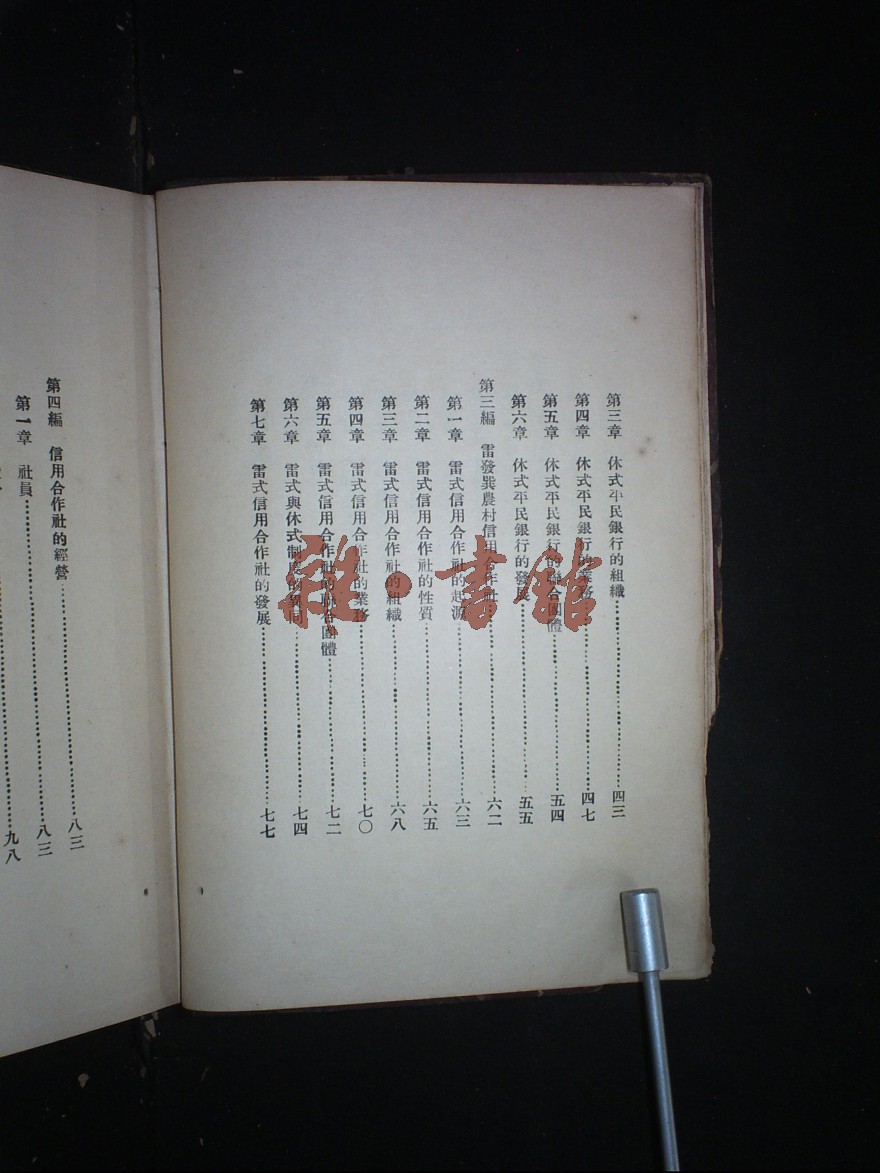 第三章 休式平民銀行的組織…四三
第四章 休式平民銀行的業務…四七
第五章 休式平民銀行的聯合團體…五四
第六章 休式平民銀行的發展…五五
第三編 雷發巽農村信用合作社…六二
第一章 雷式信用合作社的起源…六三
第二章 雷式信用合作社的性質…六五
第三章 雷式信用合作社的組織…六八
第四章 雷式信用合作社的業務…七〇
第五章 雷式信用合作社的聯合團體…七二
第六章 雷式與休式制度的異同…七四
第七章 雷式信用合作社的發展…七七
第四編 信用合作社的經營…八三
第一章 社員…八三
九八
書館